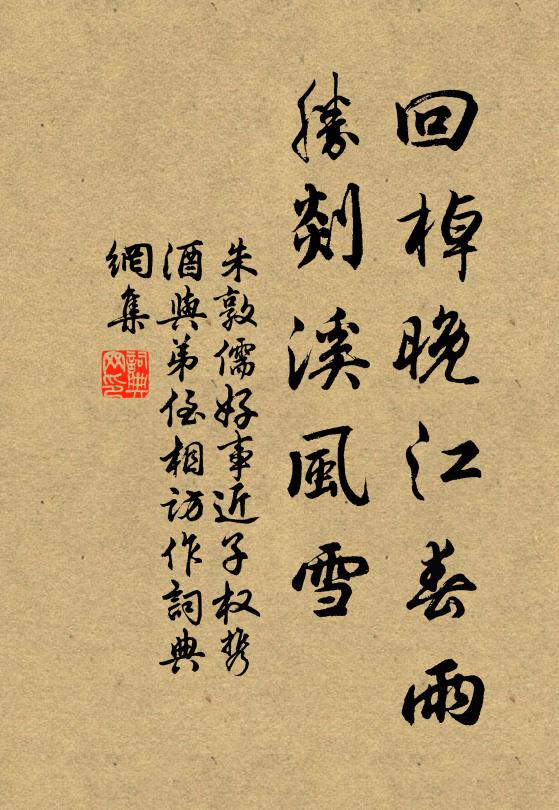 回棹晚江春雨
勝剡溪風雪
朱敦儒好事近子权携
酒與弟侄相訪作詞典
網集
詞典
网印